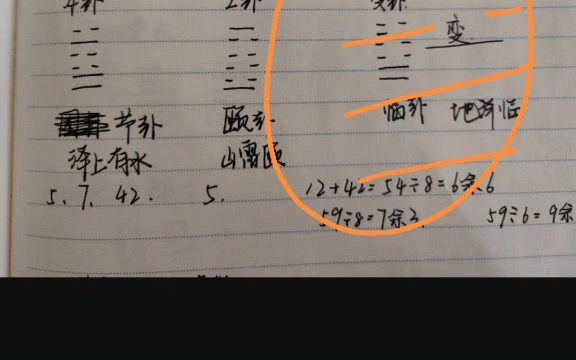 本卦 互卦 变卦
变
节卦 颐卦 临卦 地泽临
泽上有水 山雷颐
5、7、42. 5. 12+42=54÷8=6余6
59÷8=7余3 59÷6=9余